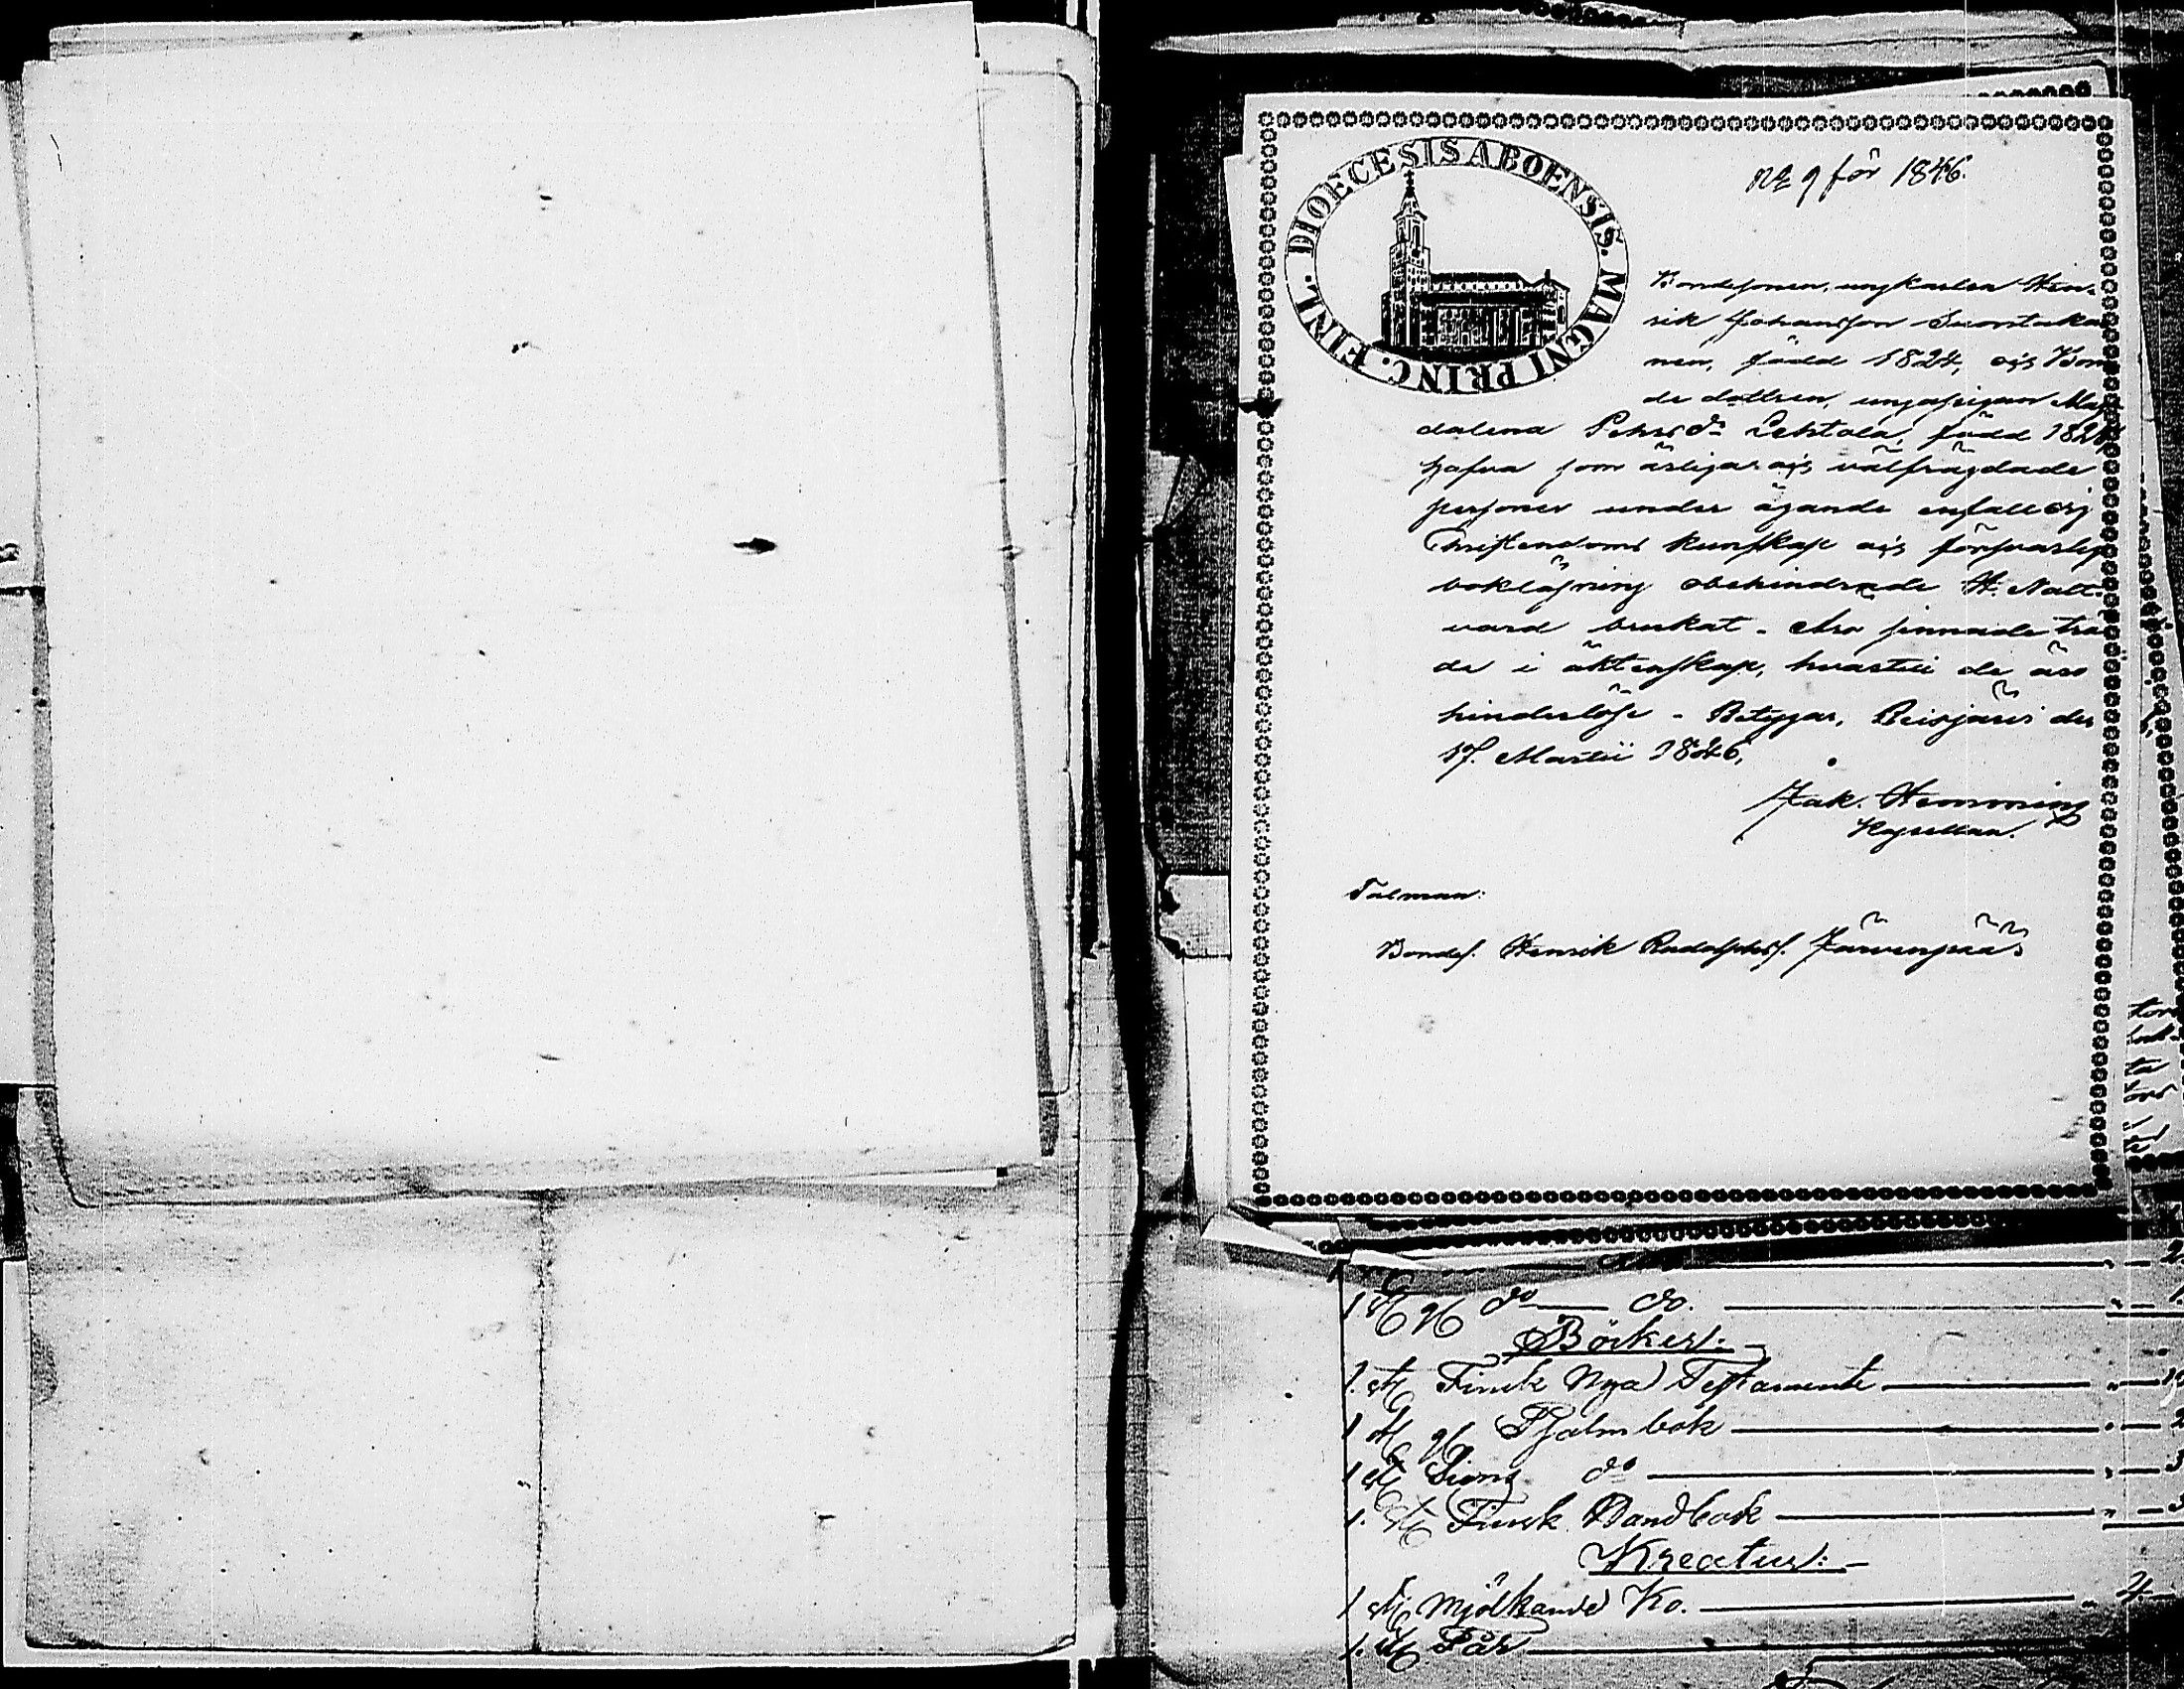 DIOECESIS ABOENSIS. MAGNI PRINC. FINL.
No 9 för 1846.
Bondesonen, ungkarlen Hen-
rik Johansson Suontaka
nen, född 1824, och Bon
de dottren, ungapigan Mag
dalena Pehrsdr Lehtola, född 182
hafva som ärliga och välfrägdade
personer under ägande enfalldig
Christendoms kunskap och försvarlig
bokläsning obehindrade H. Natt-
vard brukat. Äro sinnade trä
da i äktenskap, hvartill de äro
hinderlöse. Betygar, Reisjärvi den
17. Martii 1846,
Jak. Hemming
Kapellan.
Talman:
Bondes. Henrik Rudolphss. Järvenpää
1 St do do.
Böcker:
1. St Finsk Nya Testamente
1 St Psalmbok
1 St Sions do
1. St Finsk Handbok
Kreatur:
1 St Mjölkande Ko. 4
1. St Får